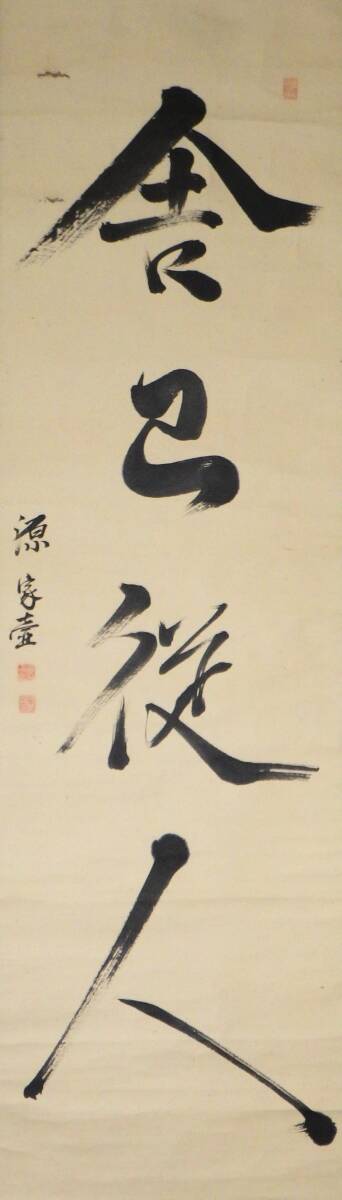 舎己従人
源家壷